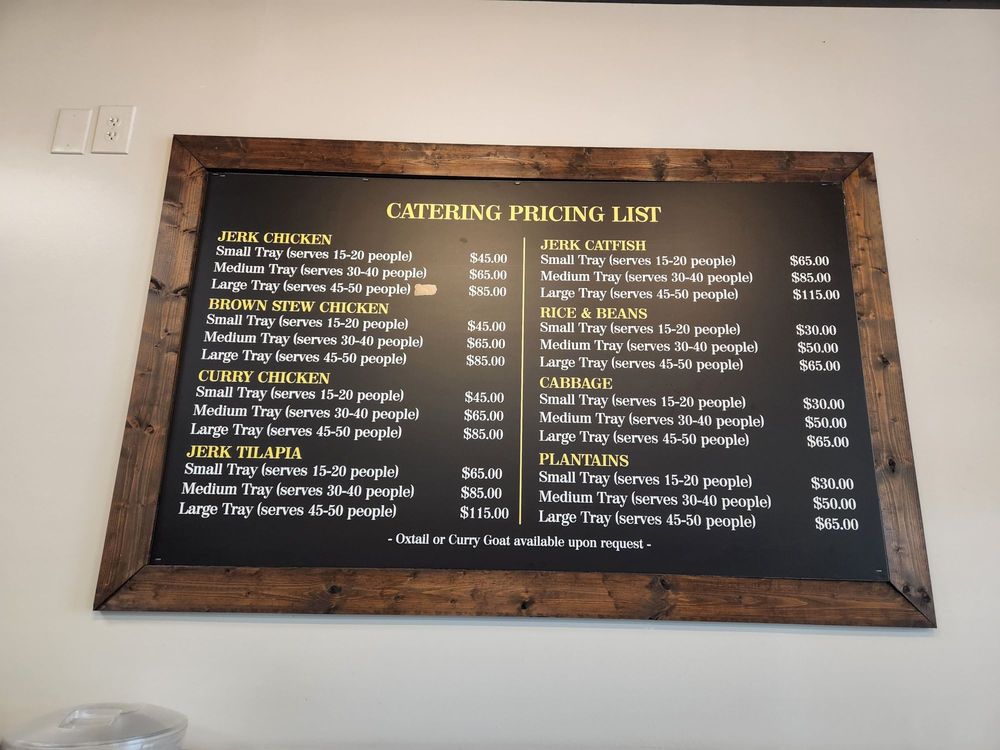 CATERING PRICING LIST
JERK CHICKEN
Small Tray (serves 15-20 people) $45.00
Medium Tray (serves 30-40 people) $65.00
Large Tray (serves 45-50 people) $85.00
BROWN STEW CHICKEN
Small Tray (serves 15-20 people) $45.00
Medium Tray (serves 30-40 people) $65.00
Large Tray (serves 45-50 people) $85.00
CURRY CHICKEN
Small Tray (serves 15-20 people) $45.00
Medium Tray (serves 30-40 people) $65.00
Large Tray (serves 45-50 people) $85.00
JERK TILAPIA
Small Tray (serves 15-20 people) $65.00
Medium Tray (serves 30-40 people) $85.00
Large Tray (serves 45-50 people) $115.00
JERK CATFISH
Small Tray (serves 15-20 people) $65.00
Medium Tray (serves 30-40 people) $85.00
Large Tray (serves 45-50 people) $115.00
RICE & BEANS
Small Tray (serves 15-20 people) $30.00
Medium Tray (serves 30-40 people) $50.00
Large Tray (serves 45-50 people) $65.00
CABBAGE
Small Tray (serves 15-20 people) $30.00
Medium Tray (serves 30-40 people) $50.00
Large Tray (serves 45-50 people) $65.00
PLANTAINS
Small Tray (serves 15-20 people) $30.00
Medium Tray (serves 30-40 people) $50.00
Large Tray (serves 45-50 people) $65.00
- Oxtail or Curry Goat available upon request -